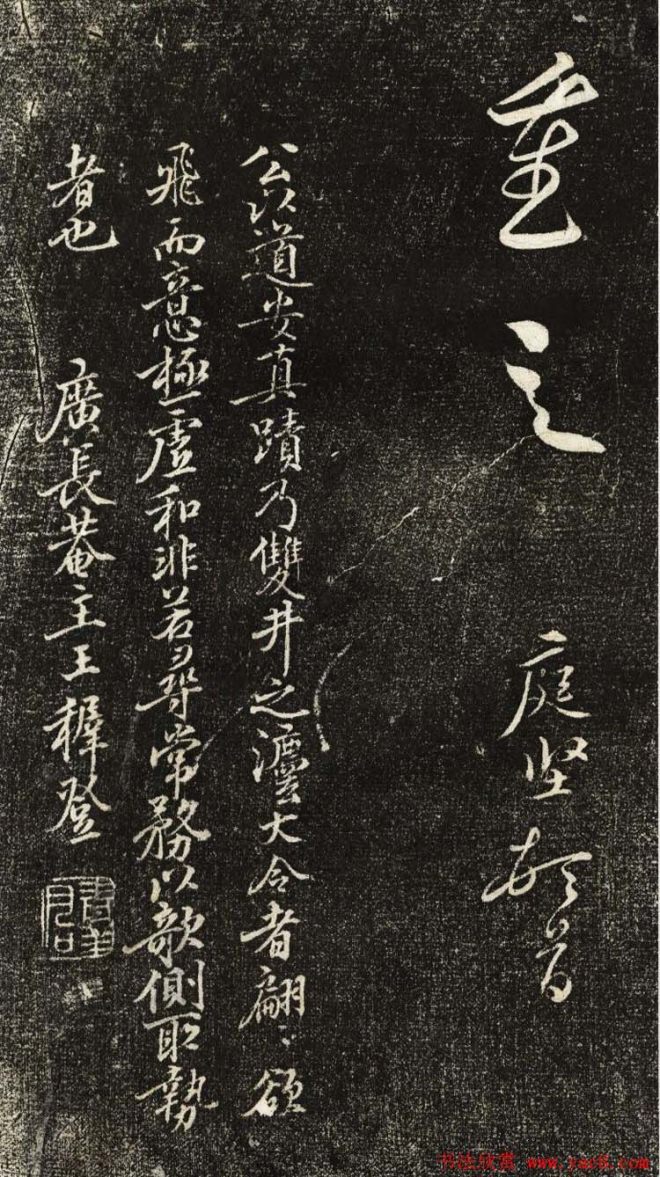 重之
庭堅頓首
公以道安真蹟乃雙井之灋大令者翩〻欲
飛而意極虛和非若尋常務以欹側取勢
者也 廣長菴主王穉登
书法欣赏 www.yac8.com